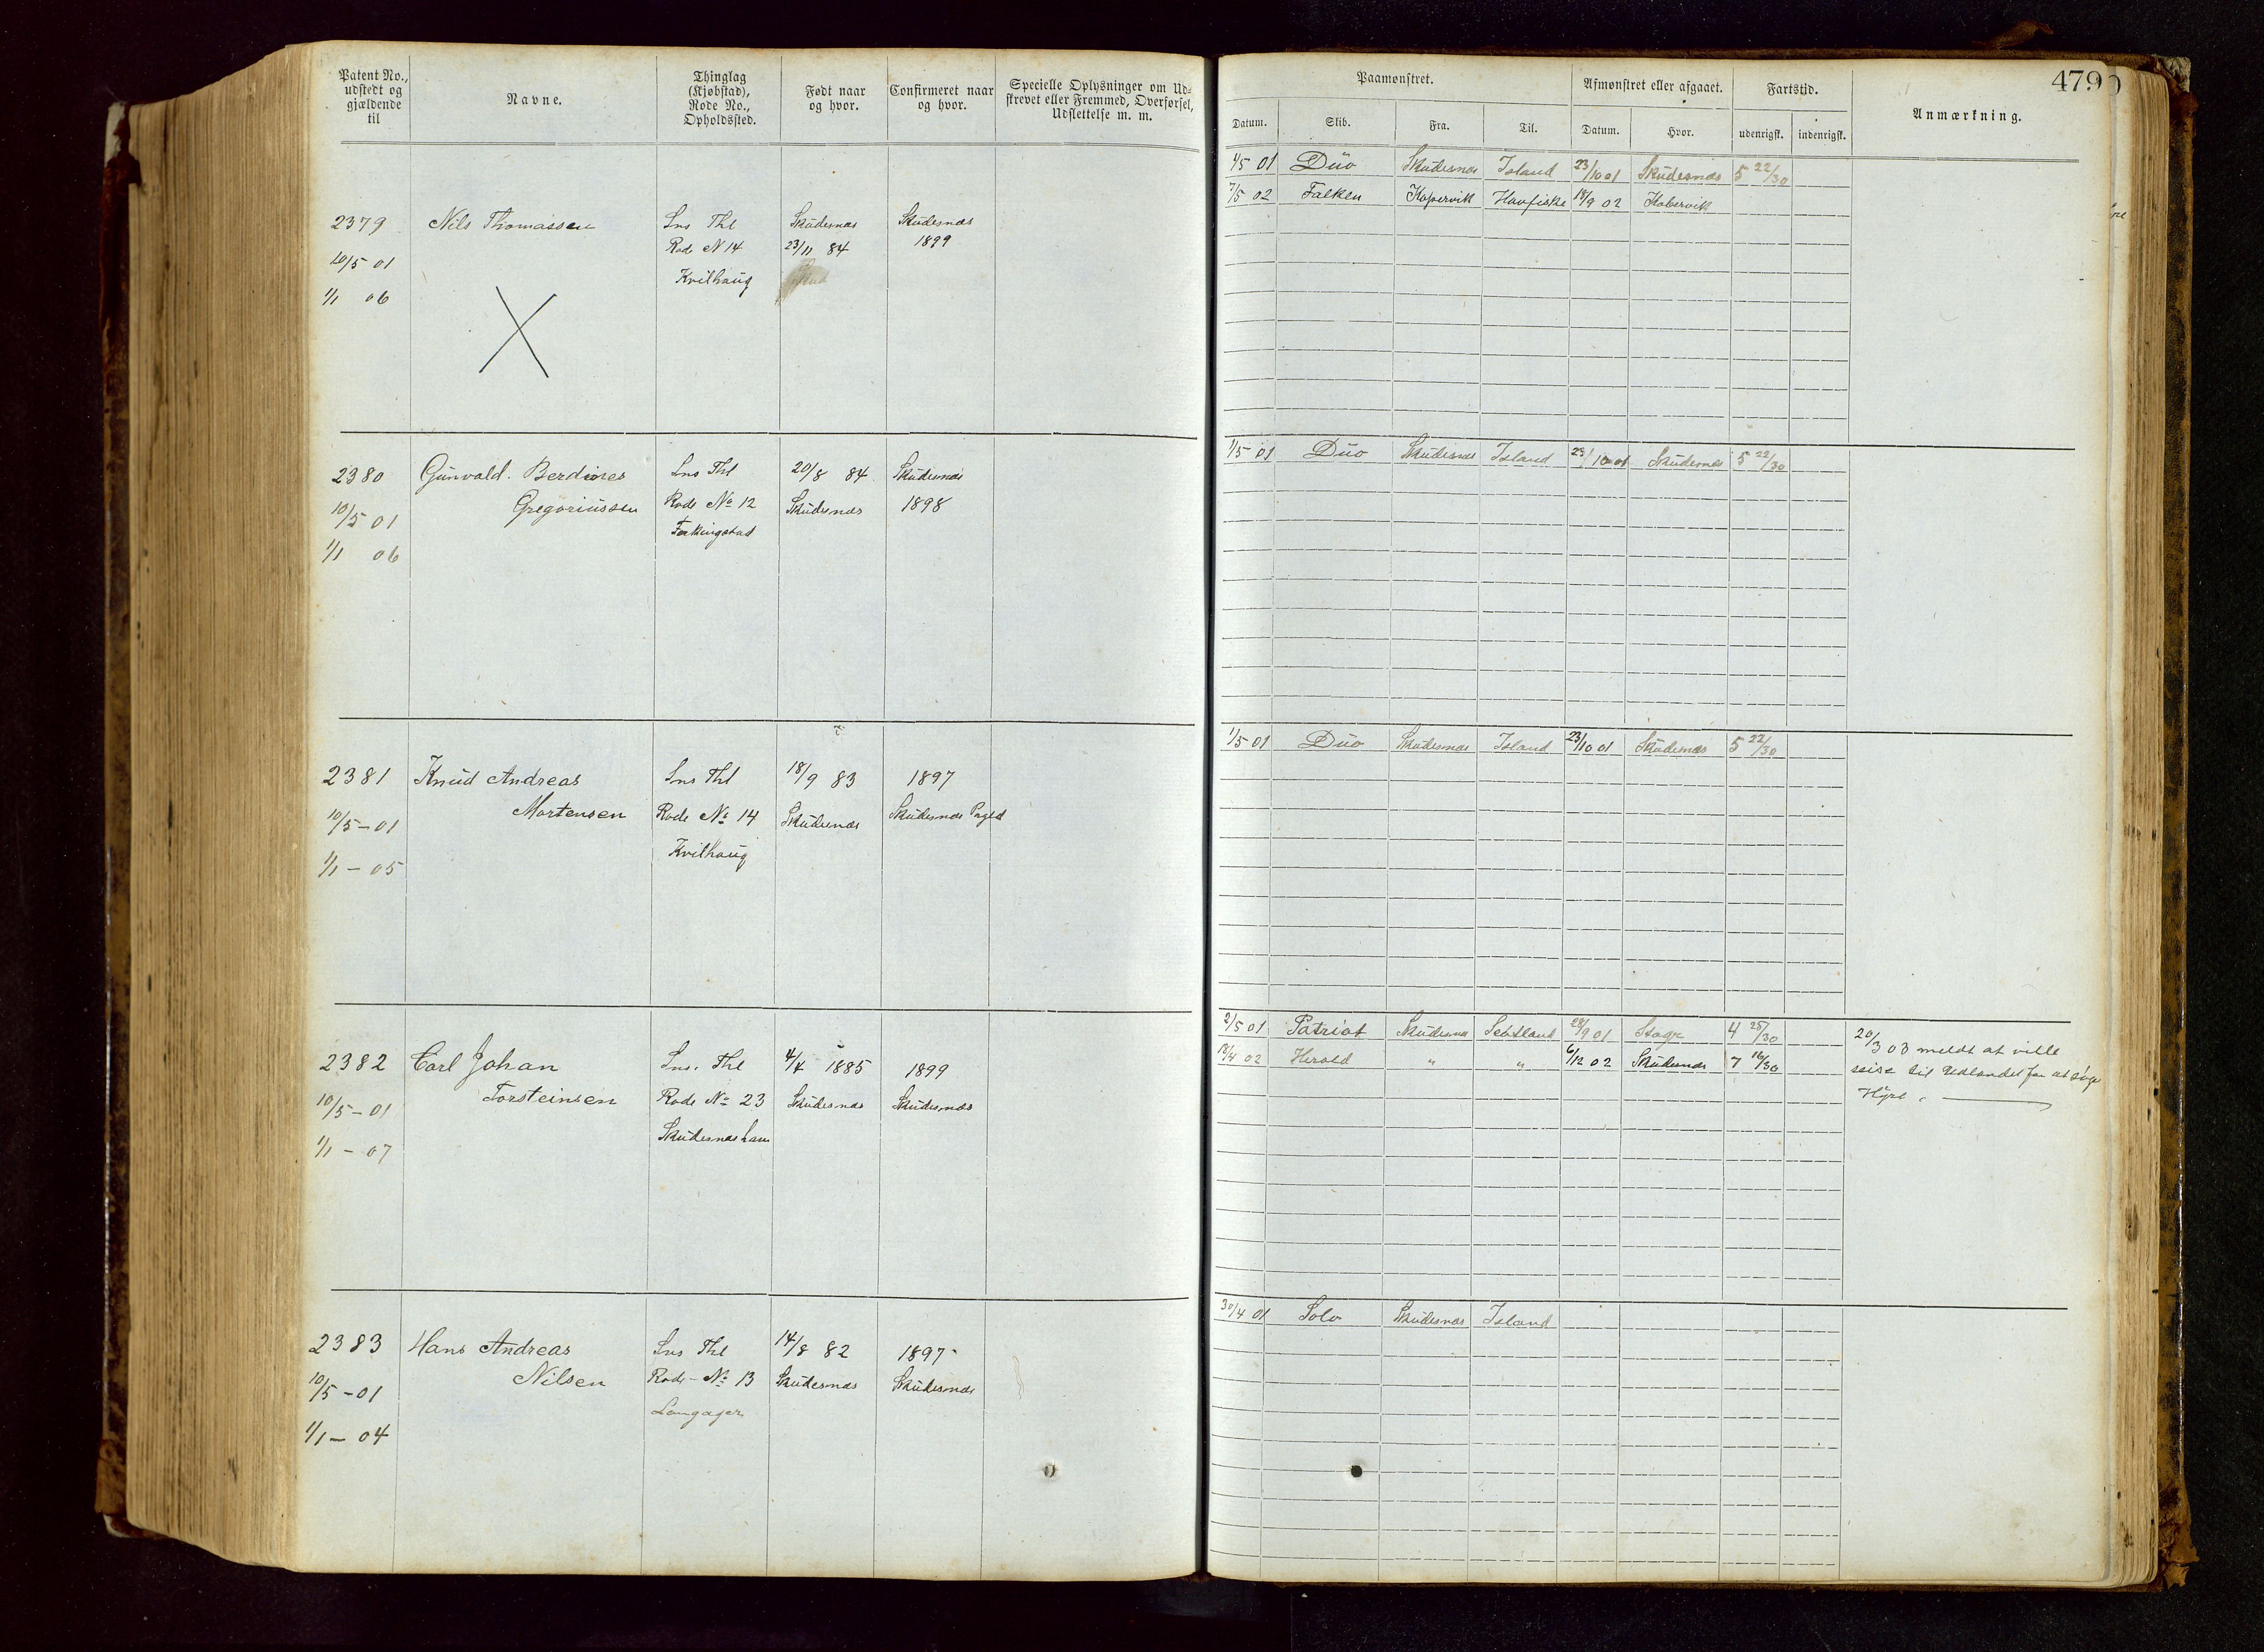 Patent No., udstedt og gjældende til
Navne.
Thinglag (Kjøbstad), Rode No., Opholdssted.
Født naar og hvor.
Confirmeret naar og hvor.
Specielle Oplysninger om Udskrevet eller Fremmed, Overførsel, Udslettelse m. m.
2379 Nils Thomassen Sns Thl Skudesnæs Skudesnæs
10/5 01 Rode N 14 23/11 84 1899
1/1 06 Kvilhaug
2380 Gunvald. Berdines Sns Thl 20/8 84 Skudesnæs
10/5 01 Gregoriussen Rode No 12 Skudesnæs 1898
1/1 06 Ferkingstad
2381 Knud Andreas Sns Thl 18/9 83 1897
10/5-01 Mortensen Rode No 14 Skudesnæs Skudesnæs Pagld
1/1-05 Kvilhaug
2382 Carl Johan Sns. Thl 4/4 1885 1899
10/5-01 Torsteinsen Rode No 23 Skudesnæs Skudesnæs
1/1-07 Skudesnæshavn
2383 Hans Andreas Sns Thl 14/8 82 1897
10/5-01 Nilsen Rode-No 13 Skudesnæs Skudesnæs
1/1-04 Langager
479
Paamønstret.
Afmønstret eller afgaaet.
Fartstid.
Anmærkning.
Datum. Skib. Fra. Til. Datum. Hvor. udenrigsk. indenrigsk.
1/5 01 Duo Skudesnæs Island 23/10 01 Skudesnæs 5 22/30
7/5 02 Falken Kopervik Havfiske 18/9 02 Kobervik
1/5 01 Duo Skudesnæs Island 23/10 01 Skudesnæs 5 22/30
1/5 01 Duo Skudesnæs Island 23/10 01 Skudesnæs 5 22/30
2/5 01 Patriot Skudesnæs Schtland 28/9 01 4 25/30 20/3 03 meldt at ville
18/4 02 Herold " " 6/12 02 Skudesnæs 7 16/30 reise til Udlandet for at søge
Hyre.
30/4 01 Solo Skudesnæs Island